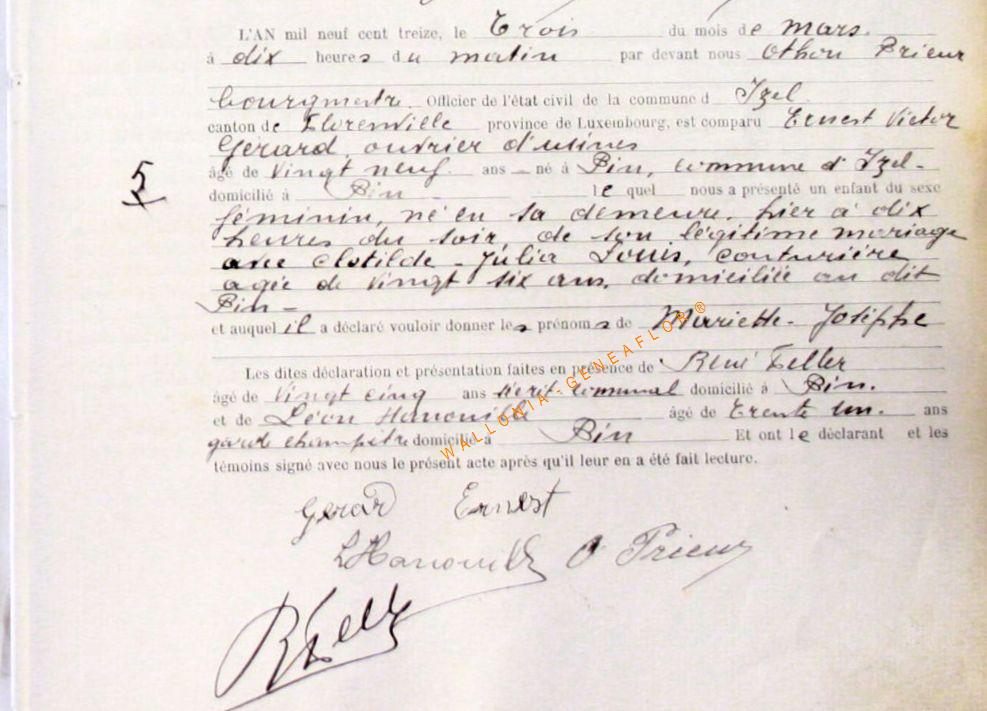 L'AN mil neuf cent treize, le Trois du mois de Mars.
à dix heures du matin par devant nous Othon Prieur
bourgmestre. Officier de l'état civil de la commune d Izel
canton de Florenville province de Luxembourg, est comparu Ernest Victor
Gérard, ouvrier d'usines
âgé de Vingt neuf ans né à Pin, commune d'Izel.
5
domicilié à Pin lequel nous a présenté un enfant du sexe
féminin, né en sa demeure, hier à dix
heures du soir, de son légitime mariage
avec Clotilde - Julia Louis, couturière
agée de Vingt six ans, domiciliée au dit
Pin -
et auquel il a déclaré vouloir donner les prénoms de Mariette - Joséphe
Les dites déclaration et présentation faites en présence de René Feller
âgé de Vingt cinq ans communal domicilié à Pin.
et de Léon Hanouille âgé de Trente un. ans
garde champêtre domicilié à Pin Et ont le déclarant et les
témoins signé avec nous le présent acte après qu'il leur en a été fait lecture.
WALLONIA-GENEAFLOR ®
Gerard Ernest
LHanouille O Prieur